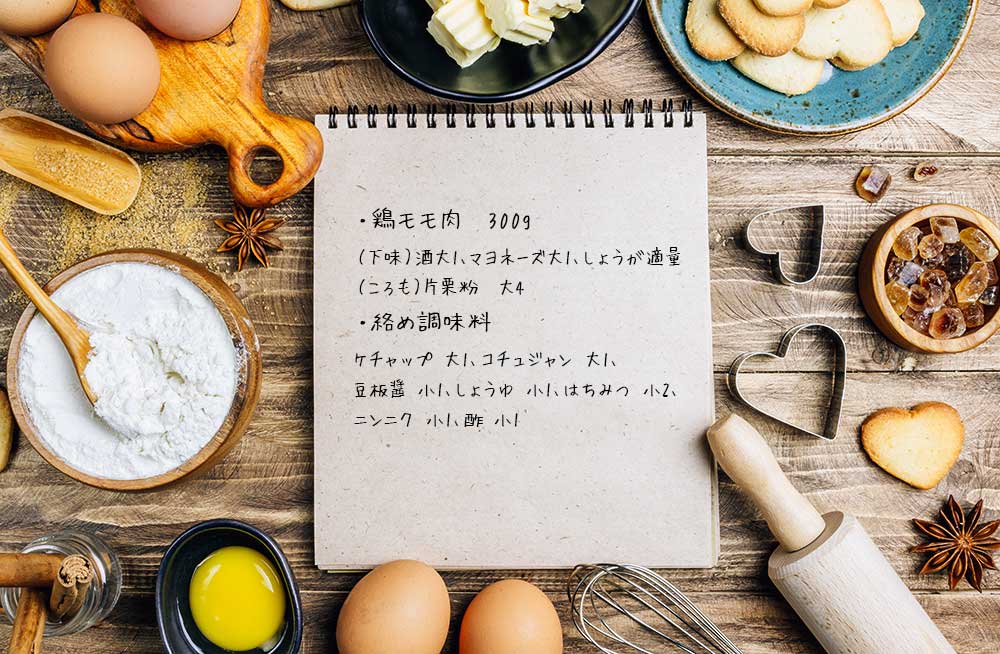 ・鶏モモ肉　300g
(下味)酒大1、マヨネーズ大1、しょうが適量
(ころも)片栗粉　大4
・絡め調味料
ケチャップ 大1、コチュジャン 大1、
豆板醤 小1、しょうゆ 小1、はちみつ 小2、
ニンニク 小1、酢 小1